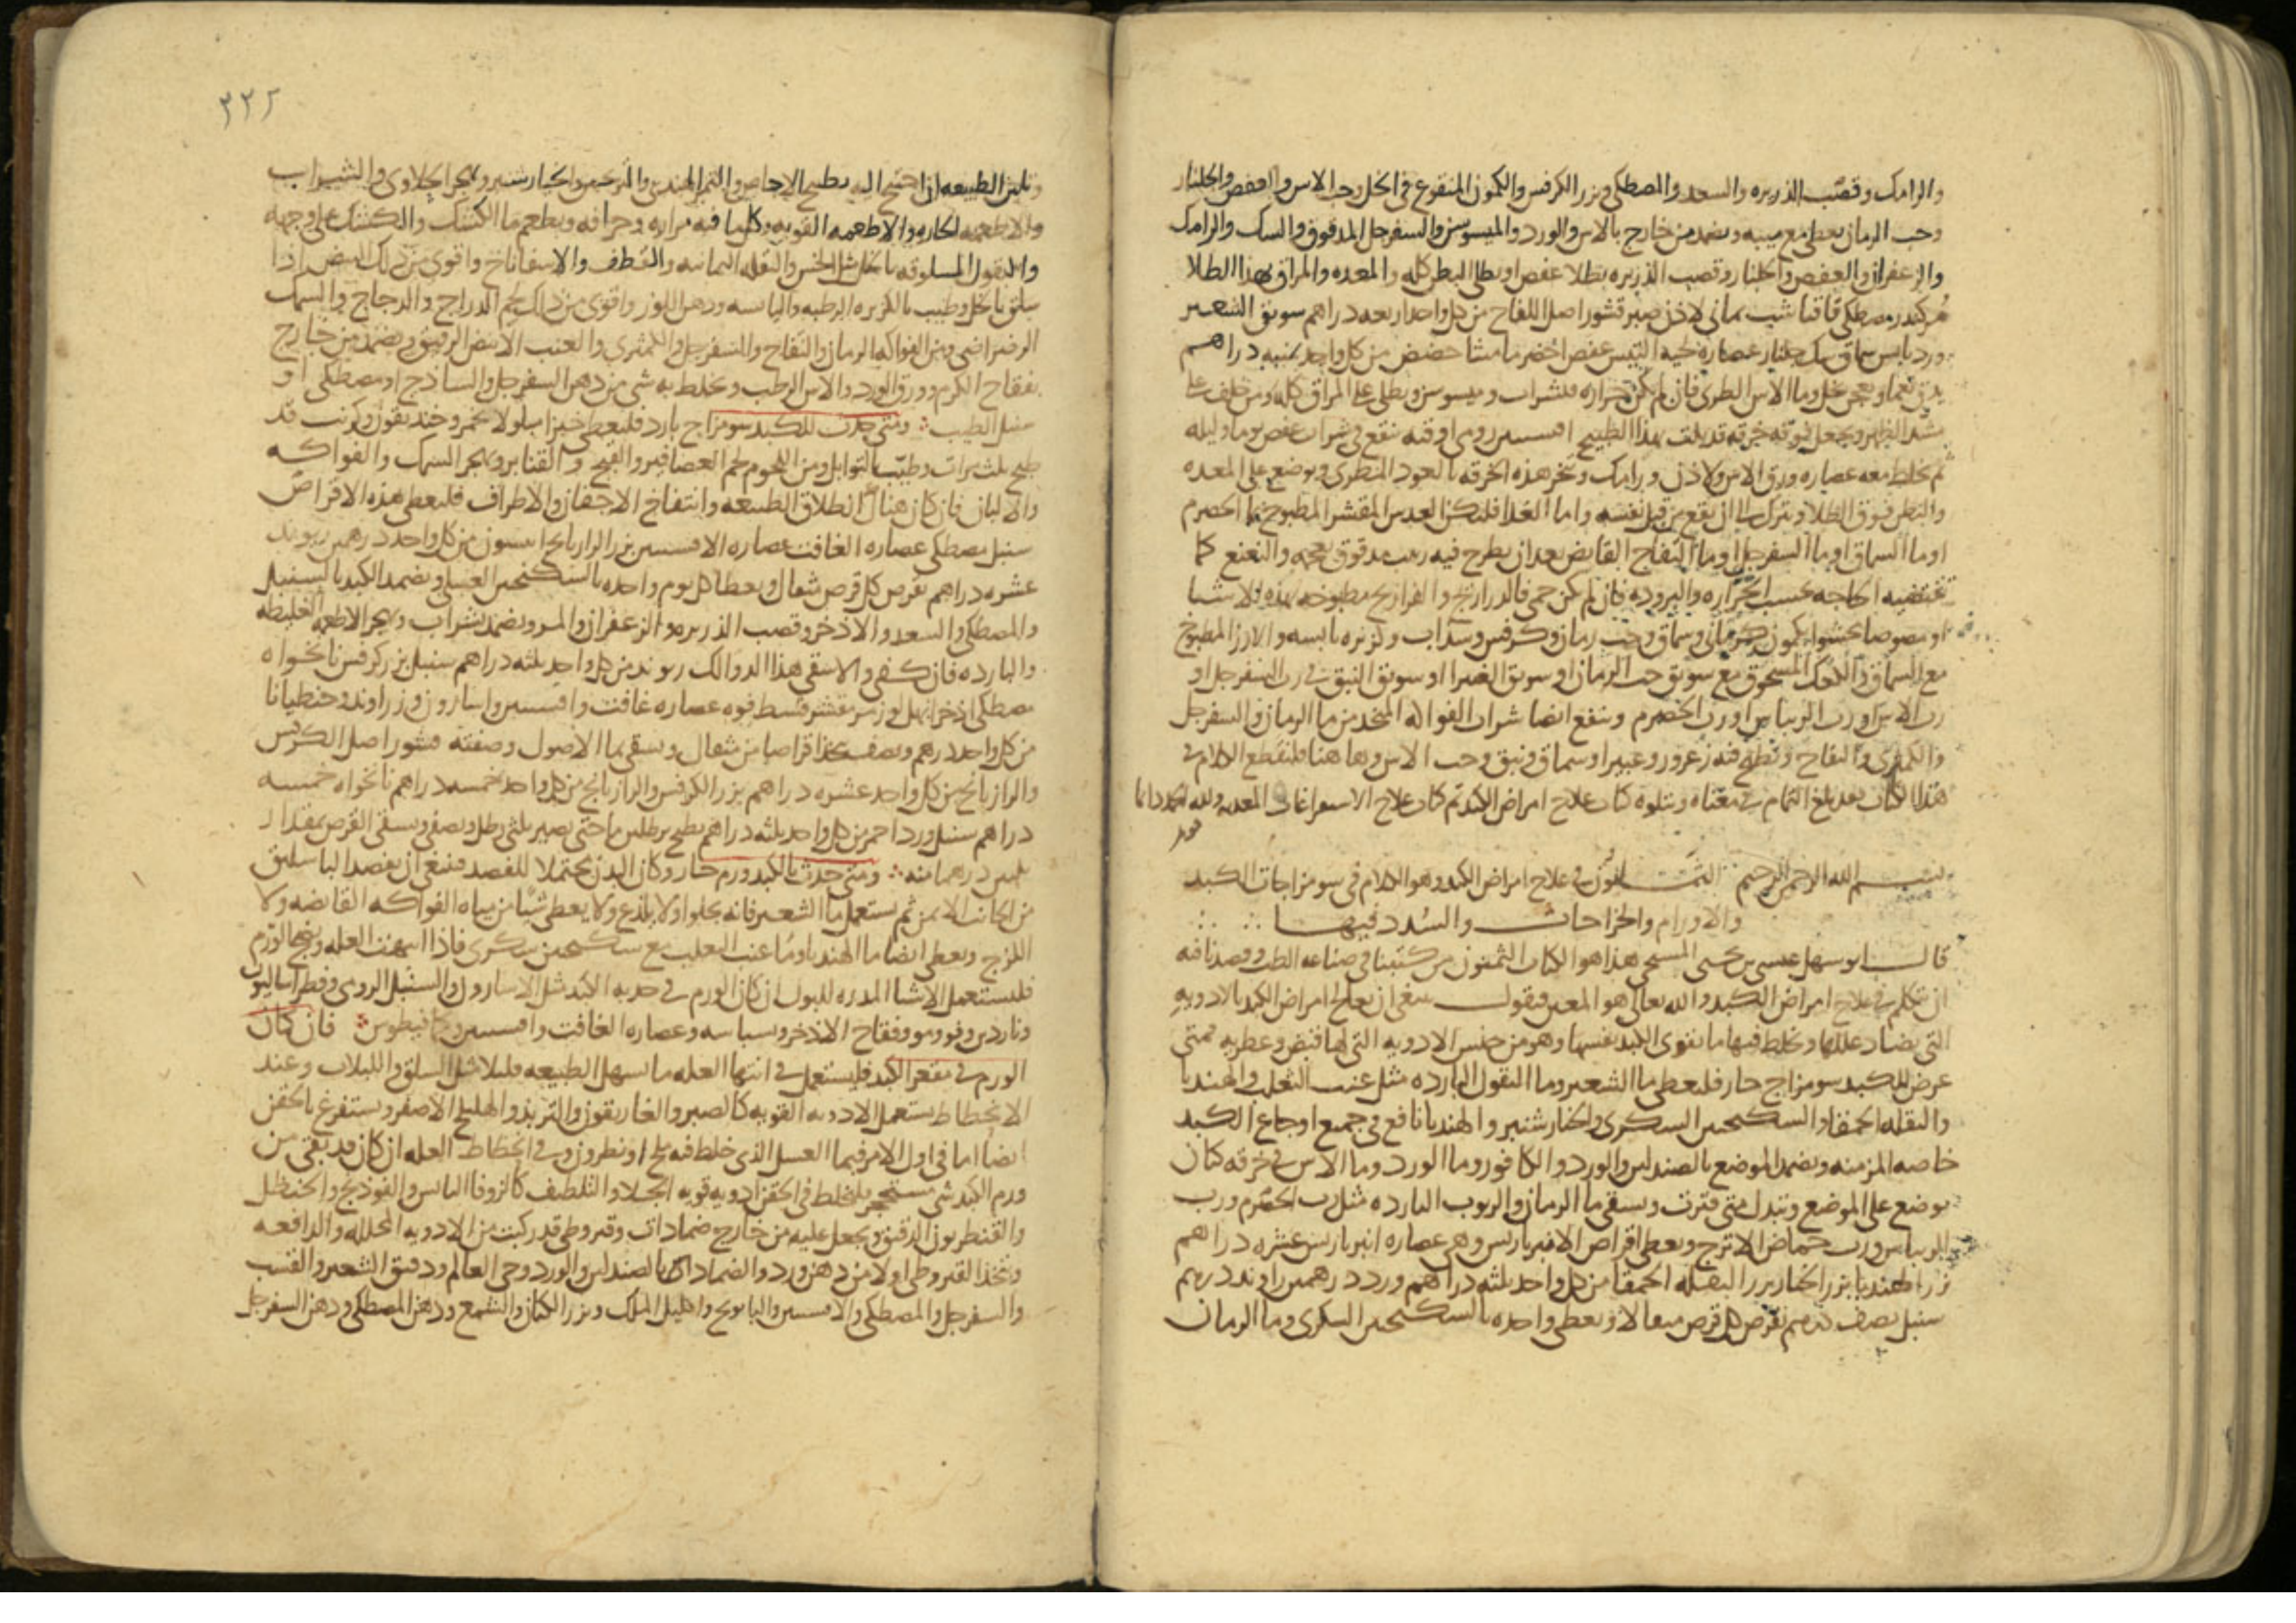 والرامك وقصب الذريره والسعد والمصطكى وبزر الكرفس والكمون المنقوع في الخل وحب الاس والعفص والجلنار
وحب الرمان يعطى مع ميبه ويضمد من خارج بالاس والورد والميسوسن والسفرجل المدقوق والسك والرامك
والزعفران والعفص والجلنار وقصب الذريره بطلا عفص او يطلى البطن كله والمعده والمراق بهذا الطلا
كندر مصطكى قاقيا شب يمانى لاذن صبر قشور اصل اللفاح من كل واحد اربعه دراهم سويق الشعير
ورد يابس سماق سك جلنار عصاره لحيه التيس عفص اخضر مامیشا حضض من كل واحد ثمنيه دراهم
يدق نعما ويعجن بخل وما الاس الطرى فان لم يكن حراره فبشراب وميسوسن ويطلى على المراق كله ومن خلف على
الظهر ويجعل فوقه خرقه قد بلت بهذا الطبيخ افسنتين رومى اوقيه نقع في شراب عفص يوما وليله
ثم يخلط معه عصاره ورق الاس ولاذن ورامك وتبخر هذه الخرقه بالعود المطرى ويوضع على المعده
والبطن فوق الطلا ويترك الى ان يقع من قبل نفسه واما الغذا فليكن العدس المقشر المطبوخ بما الحصرم
او ما السماق او ما السفرجل او ما التفاح القابض بعد ان يطرح فيه زبيب مدقوق بعجمه والنعنع كما
تقتضيه الحاجه بحسب الحراره والبروده فان لم يكن حمى فالدراريج والفراريج مطبوخه بهذه الاشيا
او مصوصا محشوا بكمون كرمانى وسماق وحب رمان وكرفس وسذاب وكزبره يابسه والارز المطبوخ
مع السماق والكعك المسحوق مع سويق حب الرمان او سويق الغبيرا او سويق النبق في رب السفرجل او
رب الاس او رب الريباس او رب الحصرم وينفع ايضا شراب الفواكه المتخذ من ما الرمان والسفرجل
والكمثرى والتفاح وتطبخ فيه زعرور وغبيرا وسماق ونبق وحب الاس وها هنا فلنقطع الكلام في
هذا الكتاب بعد بلوغ التمام في معناه ويتلوه كتاب علاج امراض الكبد تم كتاب علاج الاستفراغات المعديه ولله الحمد دايما
بسم الله الرحمن الرحيم الثمانون في علاج امراض الكبد وهو الكلام في سو مزاجات الكبد
والاورام والخراجات والسدد فيها
قال ابو سهل عيسى بن يحيى المسيحى هذا هو الكتاب الثمنون من كتبنا في صناعه الطب وقصدنا فيه
ان نتكلم في علاج امراض الكبد والله تعالى هو المعين فنقول ينبغى ان يعالج امراض الكبد بالادويه
التى يضاد عللها ويخلط فيها ما يقوى الكبد نفسها وهو من جنس الادويه التى لها قبض وعطريه فمتى
عرض للكبد سو مزاج حار فليعطى ما الشعير وما البقول البارده مثل عنب الثعلب والهندبا
والبقله الحمقا والسكنجبين السكرى والخيارشنبر والهندبا نافع في جميع اوجاع الكبد
خاصه المزمنه ويضمد الموضع بالصندلين والورد والكافور وما الورد وما الاس في خرقه كتان
يوضع على الموضع وتبدل متى فترت ويسقى ما الرمان والربوب البارده مثل رب الحصرم ورب
الريباس ورب حماض الاترج ويعطى اقراص الامبرباريس وهى عصاره انبرباريس عشره دراهم
بزر الهندبا بزر الخيار بزر البقله الحمقا من كل واحد ثلثه دراهم ورد درهمين راوند درهم
سنبل نصف درهم يقرص كل قرص مثقالا ويعطى واحده بالسكنجبين السكرى وما الرمان
٣٢٥
وتلين الطبيعه ان احتيج اليه بطبيخ الاجاص والتمر الهندى والترنجبين والخيارشنبر ويهجر الحلاوى والشراب
والاطعمه الحاره والاطعمه القويه وكل ما فيه مراره وحرافه ويطعم ما الكشك والكشك على وجهه
والبقول المسلوقه بالخل مثل الخس والبقله اليمانيه والقطف والاسفاناخ واقوى من ذلك البيض اذا
سلق بالخل وطيب بالكزبره الرطبه واليابسه ودهن اللوز واقوى من ذلك لحم الدراج والدجاج والسمك
الرضراضى ومن الفواكه الرمان والتفاح والسفرجل والكمثرى والعنب الابيض الرقيق ويضمد من خارج
بفقاح الكرم وورق الورد والاس الرطب ويخلط به شى من دهن السفرجل والساذج او مصطكى او
سنبل الطيب ومتى حدث للكبد سو مزاج بارد فليعطى خبزا مبلولا بخمر وخنديقون وكرنب قد
طبخ ثلث مرات وطيب بالتوابل ومن اللحوم لحم العصافير والقبج والقنابر ويهجر السمك والفواكه
والالبان فان كان هناك انطلاق الطبيعه وانتفاخ الاجفان والاطراف فليعطى هذه الاقراص
سنبل مصطكى عصاره الغافت عصاره الافسنتين بزر الرازيانج انيسون من كل واحد درهمين ريوند
عشره دراهم يقرص كل قرص مثقال ويعطا كل يوم واحده بالسكنجبين العسلى ويضمد الكبد بالسنبل
والمصطكى والسعد والاذخر وقصب الذريره والزعفران والمر ويضمد بشراب ويهجر الاطعمه الغليظه
والبارده فان كفى والا سقى هذا الدوا لك ريوند من كل واحد ثلثه دراهم سنبل بزر كرفس نانخواه
مصطكى اذخر ابهل لوز مر مقشر قسط فوه عصاره غافت وافسنتين واسارون وزراوند وجنطيانا
من كل واحد درهم ونصف يتخذ اقراصا من مثقال ويسقى بما الاصول وصفته قشور اصل الكرفس
والرازيانج من كل واحد عشره دراهم بزر الكرفس والرازيانج من كل واحد خمسه دراهم نانخواه خمسه
دراهم سنبل ورد احمر من كل واحد ثلثه دراهم يطبخ برطلين ما حتى يصير ثلثى رطل ويصفى ويسقى القرص بمقدار
ثلثين درهما منه ومتى حدث بالكبد ورم حار وكان البدن محتملا للفصد فينبغى ان يفصد الباسليق
من الجانب الايمن ثم يستعمل ما الشعير فانه يجلوا ولا يلذع ولا يعطى شيا من مياه الفواكه القابضه ولا
اللزج ويعطى ايضا ما الهندبا وما عنب الثعلب مع سكنجبين سكرى فاذا انتهت العله ونضج الورم
فليستعمل الاشيا المدره للبول ان كان الورم في حدبه الكبد مثل الاسارون والسنبل الرومى وفطراساليون
وناردين وفو ومو وفقاح الاذخر وبسباسه وعصاره الغافت وافسنتين وكمافيطوس فان كان
الورم في مقعر الكبد فليستعمل في انتها العله ما يسهل الطبيعه قليلا مثل السلق واللبلاب وعند
الانحطاط يستعمل الادويه القويه كالصبر والغاريقون والتربذ والهليلج الاصفر ويستفرغ بالحقن
ايضا اما في اول الامر فبما العسل الذى خلط فيه ملح او نطرون وفي انحطاط العله ان كان قد بقى من
ورم الكبد شى مستحجر يخلط في الحقن ادويه قويه الجلا والتلطيف كالزوفا اليابس والفوذنج والحنظل
والقنطريون الدقيق ويجعل عليه من خارج ضمادات وقيروطى قد ركبت من الادويه المحلله والدافعه
ويتخذ القيروطى اولا من دهن ورد والضمادات بالصندلين والورد وحى العالم ودقيق الشعير والقسب
والسفرجل والمصطكى والافسنتين والبابونج واكليل الملك وبزر الكتان والشمع ودهن المصطكى ودهن السفرجل